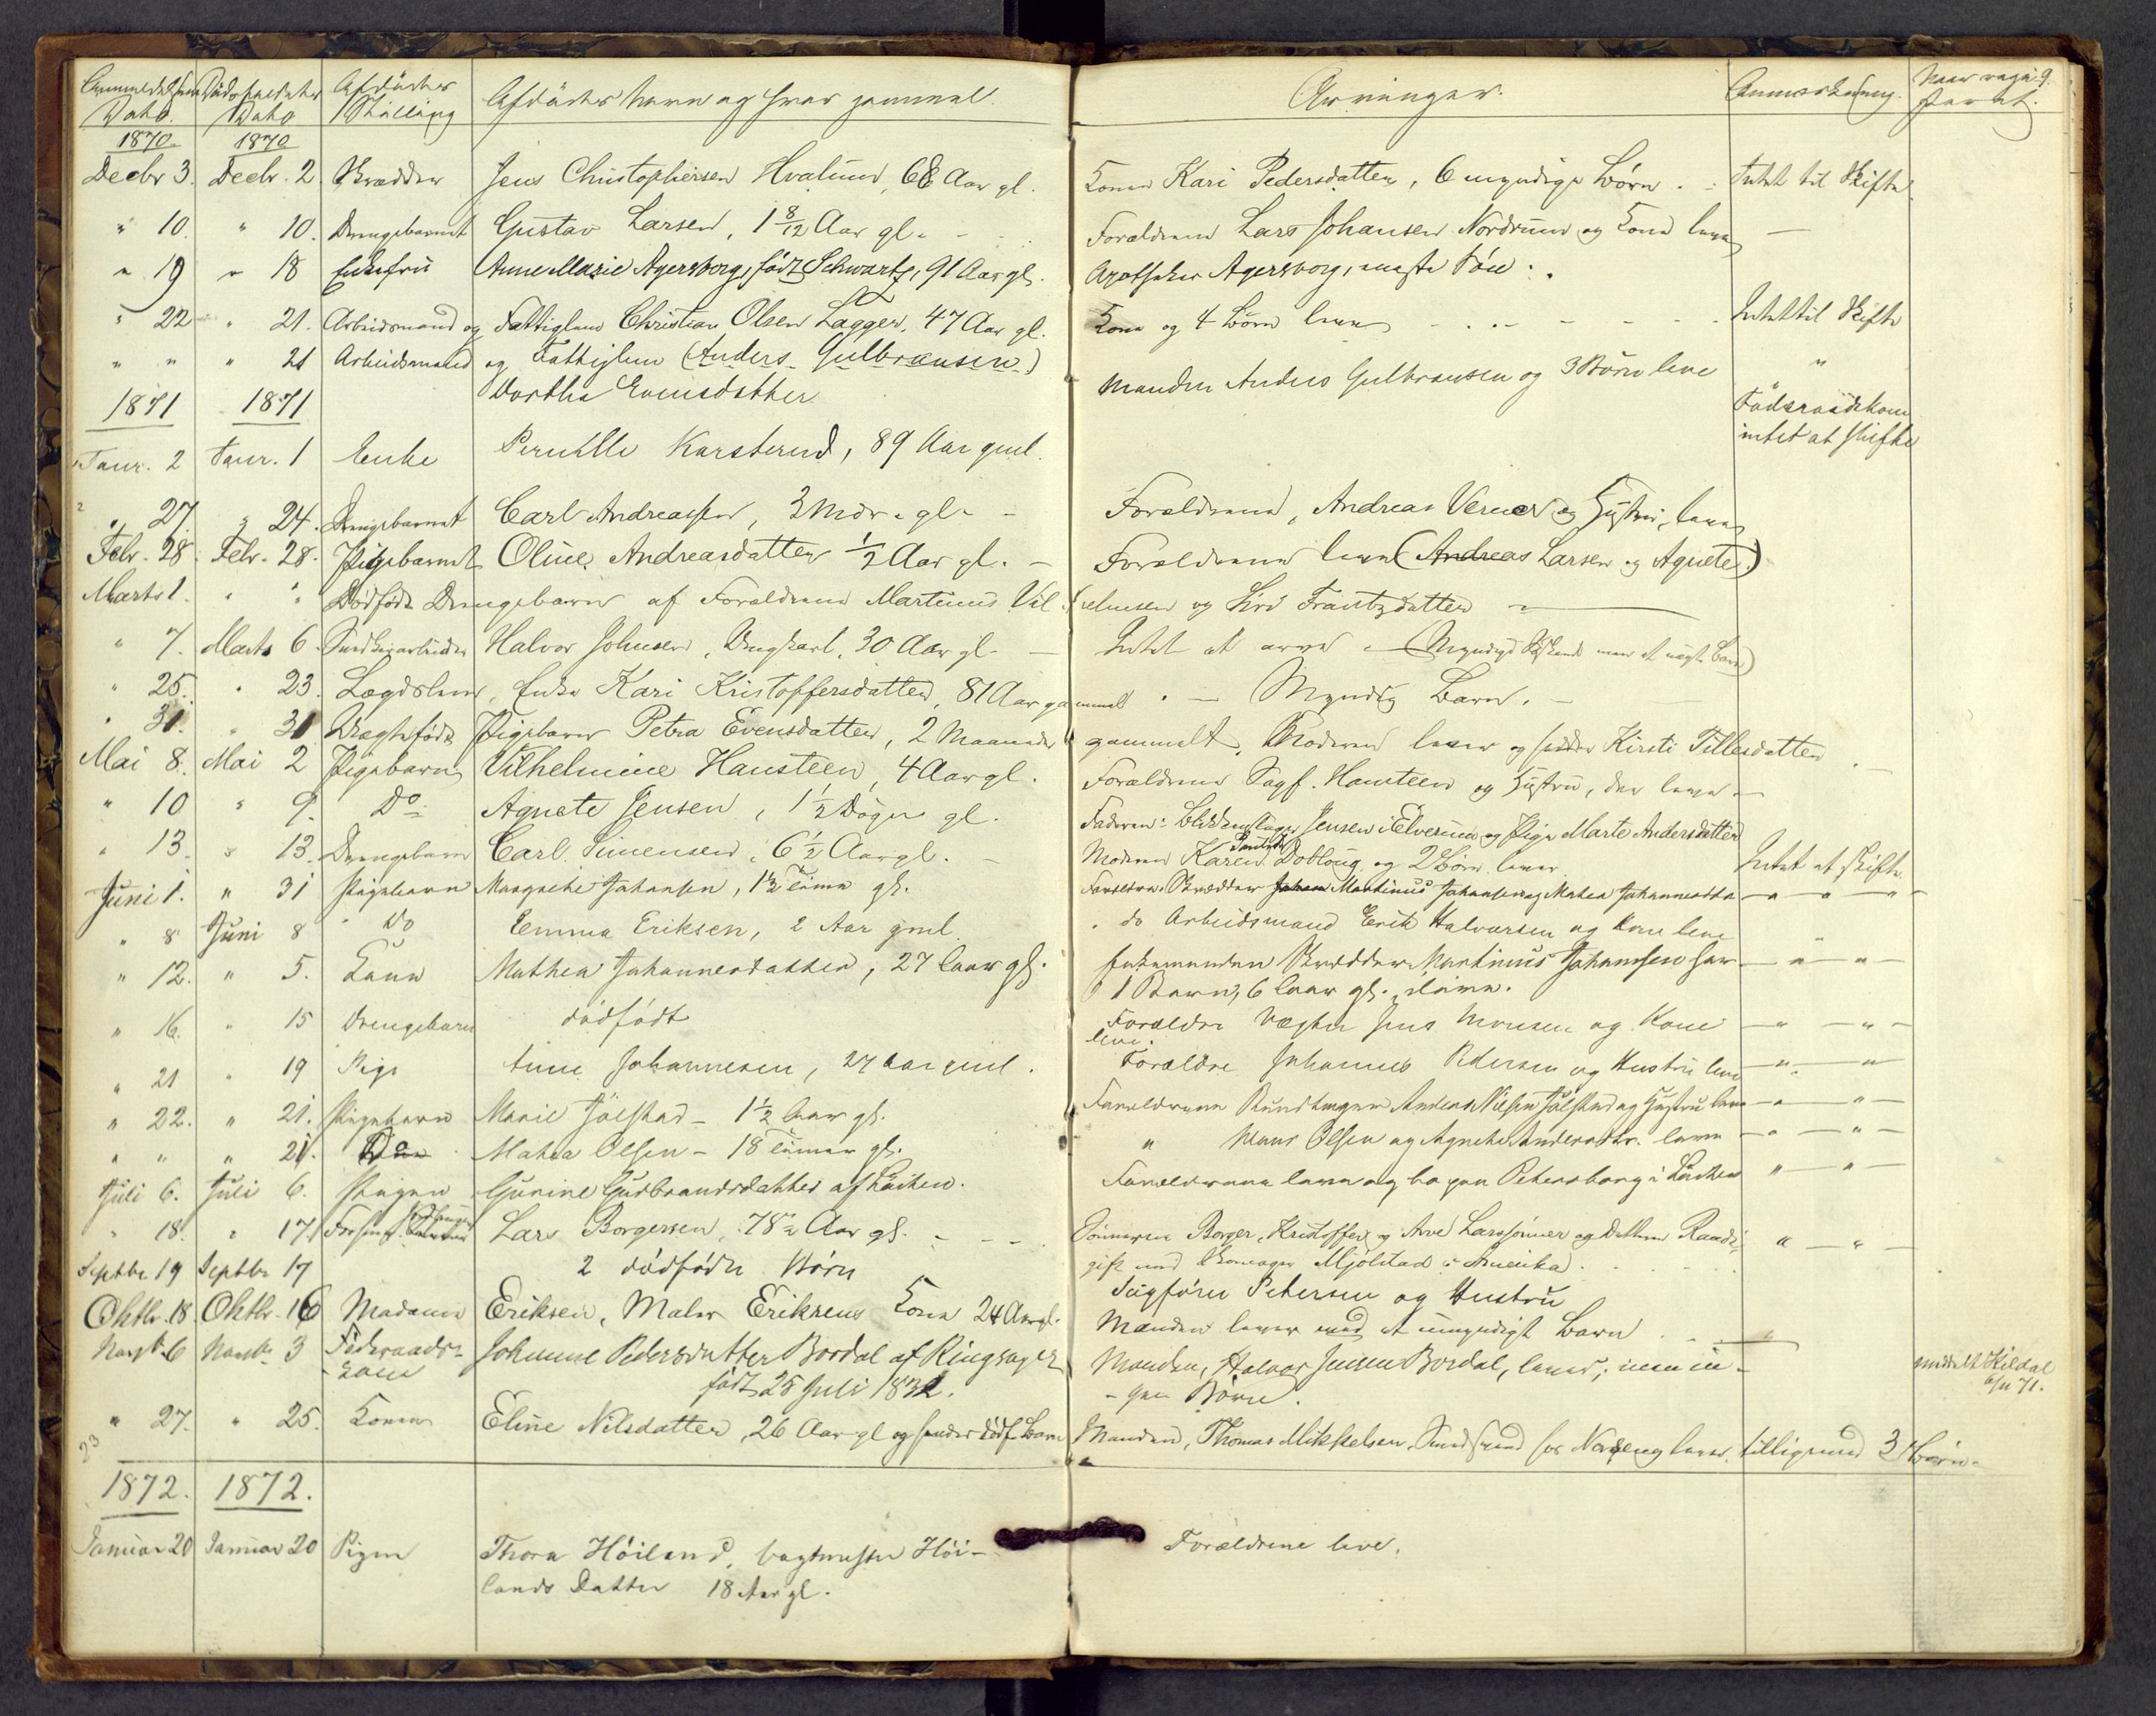 Anmeldelsens Dødsfaldets Afdødes
Dato. Dato Stilling Afdødes Navn og hvor gammel. Arvinger. Anmærkning. Naar
1870. 1870
Decbr 3. Decbr. 2. Skrædder Jens Christophersen Hvalund, 68 Aar gl. Konen Kari Pedersdatter, 6 myndige Børn. Intet til Skifte
" 10. " 10. Drengebarnet Gustav Larsen, 1 8/12 Aar gl. - Forældrene Lars Johansen Nordrum og Kone leve —
" 19 " 18 Enkefru Anne Marie Agersborg, født Schwartz, 91 Aar gl. Apotheker Agersborg, eneste Søn.
" 22 " 21. Arbeidsmand og Fattiglem Christian Olsen Lagger, 47 Aar gl. Kone og 4 Børn leve - - - Intet til Skifte
" " " 21 Arbeidsmand og Fattiglem (Anders Gulbransen)
Dorthe Evensdatter Manden Anders Gulbransen og 3 Børn leve "
1871 1871
Janr. 2 Janr. 1 Enke Pernille Karsterud, 89 Aar gml. Føderaadskone intet at skifte
" 27. " 24. Drengebarnet Carl Andreassen, 3 Mdr. gl. - Forældrene, Andreas Verner og Hustru, leve
Febr. 28. Febr. 28. Pigebarnet Oline Andreasdatter 1/2 Aar gl. - Forældrene leve (Andreas Larsen og Agnete)
Marts 1. " " Dødfødt Drengebarn af Forældrene Martinus Vilhelmsen og Siri Frantzdatter —
" 7. Marts 6. Halvor Johnsen, Ungkarl, 30 Aar gl. — Intet at arve - (Myndige Søskende men et uægte Barn)
" 25. " 23. Lægdslem, Enke Kari Kristoffersdatter, 81 Aar gammel - — Myndig Barn. -
" 31. " 31 Uægtefødt Pigebarn Petra Evensdatter, 2 Maaneder gammelt, Moderen lever og hedder Kirsti Tillesdatter -
Mai 8. Mai 2 Pigebarn Vilhelmine Hansteen, 4 Aar gl. Forældrene Sagf. Hansteen og Hustru, der leve -
" 10 " 9. Do Agnete Jensen, 1 1/2 Døgn gl. Faderen: Blikkenslager Jensen i Elverum og Pige Marte Andersdatter
" 13. " 13. Drengebarn Carl Simensen, 6 1/2 Aar gl. - Moderen Karen Doblong og 2 Børn lever. Intet at skifte.
Juni 1. " 31 Pigebarn Margrethe Johansen, 1 1/2 Time gl. Forældre. Skrædder Martinus Johansen og Mathea Johannesdtr — " — " — "
" 8 Juni 8 Do Emma Eriksen, 2 Aar gml. do Arbeidsmand Erik Halvorsen og Kone leve
" 12. " 5. Kone Mathea Johannesdatter, 27 Aar gl. Enkemanden Skrædder Martinus Johansen har — " — " —
1 Barn, 6 Aar gl. ilive.
" 16. " 15 Drengebarn dødfødt Forældre Vægter Jens Monsen og Kone — " — " —
leve.
" 21 " 19 Pige Anne Johannesen, 27 Aar gml. Forældre Johannes Pedersen og Hustru leve — " — "
" 22. " 21. Pigebarn Marie Jølstad - 1 1/2 Aar gl. Forældrene Anders Nilsen Jølstad og Hustru leve — " — " —
" " " 21. Do Mathea Olsen - 18 Timer gl. " Hans Olsen og Agnethe Andersdtr. leve — " — " —
Juli 6. Juli 6. Pigen Gurine Gudbrandsdatter af Løiten. Forældrene leve og bo paa Petersborg i Løiten " — " —
" 18. " 17. Lars Borgersen, 78 1/2 Aar gl. - - - Sønnerne Borger, Kristoffer og Arve Larssønner og Datteren Randi, " — " —
gift med Skomager Mjølstad i Amerika.
Septbr 19 Septbr 17 2 dødfødte Børn Sagfører Petersen og Hustru
Oktbr. 18. Oktbr. 16 Madame Eriksen, Maler Eriksens Kone 24 Aar gl. Manden lever med et umyndigt Barn - — "
Novbr. 6 Novbr 3 Føderaads- Johanne Pedersdatter Bordal af Ringsager Manden, Halvor Jensen Bordal, lever; men in- meddelt Kildal
kone født 25 Juli 1832. - gen Børn. 6/11 71.
" 27. " 25. Konen Eline Nilsdatter, 26 Aar gl og hendes dødf. Barn Manden, Thomas Mikkelsen, lever, tilligemed 3 Børn.
23
1872. 1872.
Januar 20 Januar 20 Pigen Thora Høiland, Vagtmester Høi- Forældrene leve.
lands Datter 18 Aar gl.